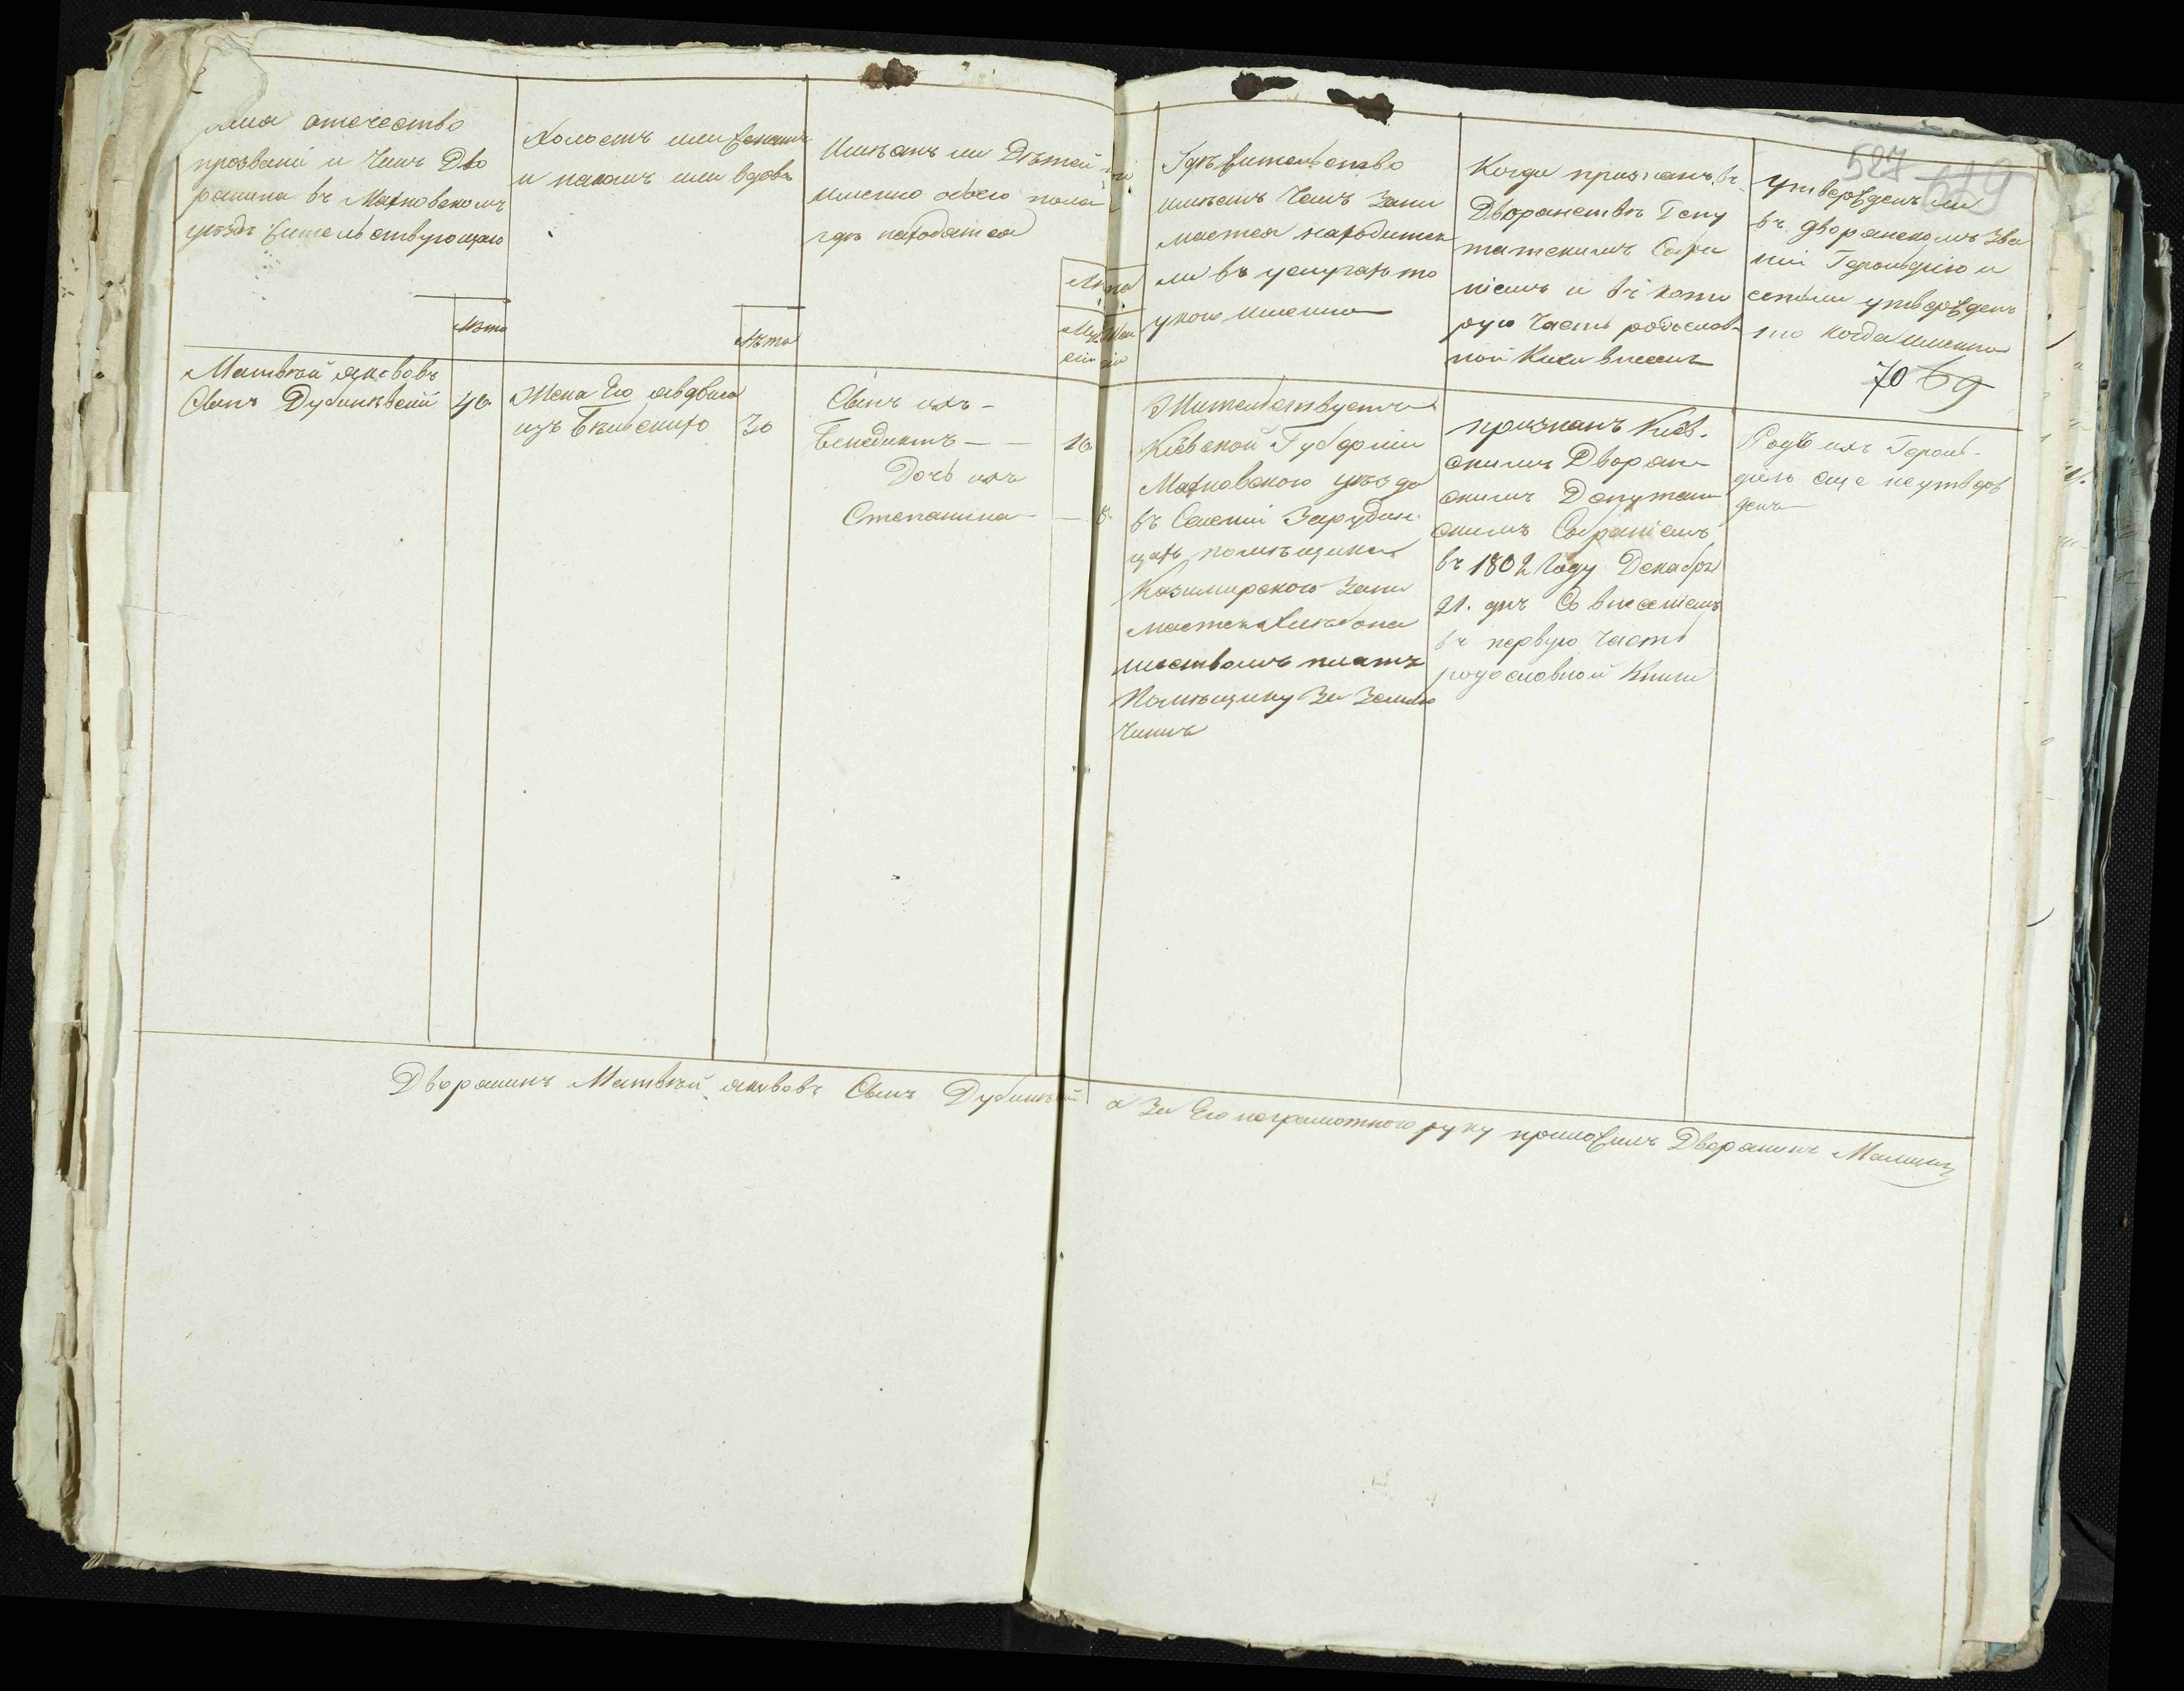 имя отечество
прозваніи и Чинъ Дво
ранина въ Махновскомъ
уѣздѣ жительствующаго
Лѣта
Холостъ или женатъ
и накомъ или вдовъ
Лѣта
Имѣетъ ли Дѣтей
именно обоего пола
гдѣ находятся
Лѣта
Гдѣ жительство
имѣетъ Чемъ Зани
мается находится
ли въ услугахъ то
укого именно
Когда признанъ въ
Дворянствѣ Депу
татскимъ Собра
ніемъ и въ кото
рую Часть родослов
ной Книги внесенъ
527 629
утвержденъ ли
въ дворянскомъ Зва
ніи Герольдіею и
естьли утвержденъ
то когда именно
70 69
Матвѣй якововъ
Сынъ Дубинѣвскій 40
Жена Его
изъ 30
Сынъ ихъ -
Бенедиктъ - - 10
Дочь ихъ
Степанина - - 8
Жительствуетъ
Кіевской Губерніи
Махновского уѣзда
въ Селеніи Зарудин
цахъ помѣщика
Казимирского Зани
мается хлѣбопа
шествомъ платя
Помѣщику За Землю
Чиншъ
признанъ Кіев-
скимъ Дворян
скимъ Депутат
скимъ Собраніемъ
въ 1802 Году Декабря
21. дня Со внесеніемъ
въ первую Часть
родословной Книги
Родъ ихъ Героль-
діею еще не утверж
денъ
Дворянинъ Матвѣй якововъ Сынъ Дубинѣвскій а За Его неграмотного руку приложилъ Дворянинъ